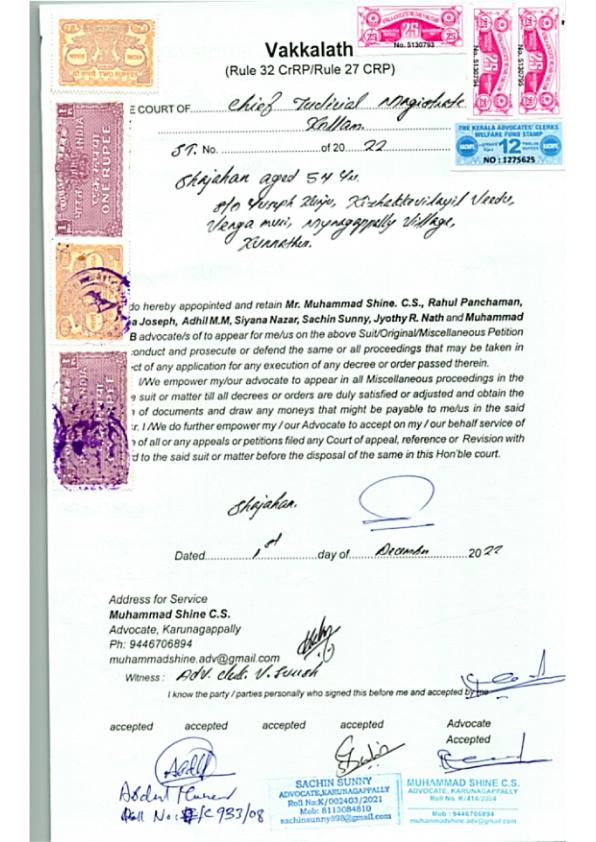 25
No. 5130793
No. 5130794
25
No. 5130795
25
भारत INDIA
दो रुपये TWO RUPEES
Vakkalath
(Rule 32 CrRP/Rule 27 CRP)
THE KERALA ADVOCATES' CLERKS
WELFARE FUND STAMP
12
NO : 1275625
भारत INDIA
एक रुपया ONE RUPEE
E COURT OF Chief Judicial Magistrate
Kollam
ST. No. of 20 22
Shajahan aged 54 Yrs.
S/o Kizhakkevilayil Veedu,
Venga muri, Mynagappally Village,
Kunnathur.
do hereby appopinted and retain Mr. Muhammad Shine. C.S., Rahul Panchaman,
a Joseph, Adhil M.M, Siyana Nazar, Sachin Sunny, Jyothy R. Nath and Muhammad
B advocate/s of to appear for me/us on the above Suit/Original/Miscellaneous Petition
conduct and prosecute or defend the same or all proceedings that may be taken in
ct of any application for any execution of any decree or order passed therein.
I/We empower my/our advocate to appear in all Miscellaneous proceedings in the
e suit or matter till all decrees or orders are duly satisfied or adjusted and obtain the
n of documents and draw any moneys that might be payable to me/us in the said
r. I /We do further empower my / our Advocate to accept on my / our behalf service of
n of all or any appeals or petitions filed any Court of appeal, reference or Revision with
d to the said suit or matter before the disposal of the same in this Hon'ble court.
INDIA
RUPEE
Shajahan.
Dated 1st day of December 2022
Address for Service
Muhammad Shine C.S.
Advocate, Karunagappally
Ph: 9446706894
muhammadshine.adv@gmail.com
Witness : Adv.
I know the party / parties personally who signed this before me and accepted by me
accepted accepted accepted accepted Advocate
Accepted
Roll No: K/C 933/08
SACHIN SUNNY
ADVOCATE,KARUNAGAPPALLY
Roll No:K/002403/2021
Mob: 8113084810
sachinsunny898@gmail.com
MUHAMMAD SHINE C.S.
ADVOCATE, KARUNAGAPPALLY
Roll No. K/414/2004
Mob : 9446706894
muhammadshine.adv@gmail.com